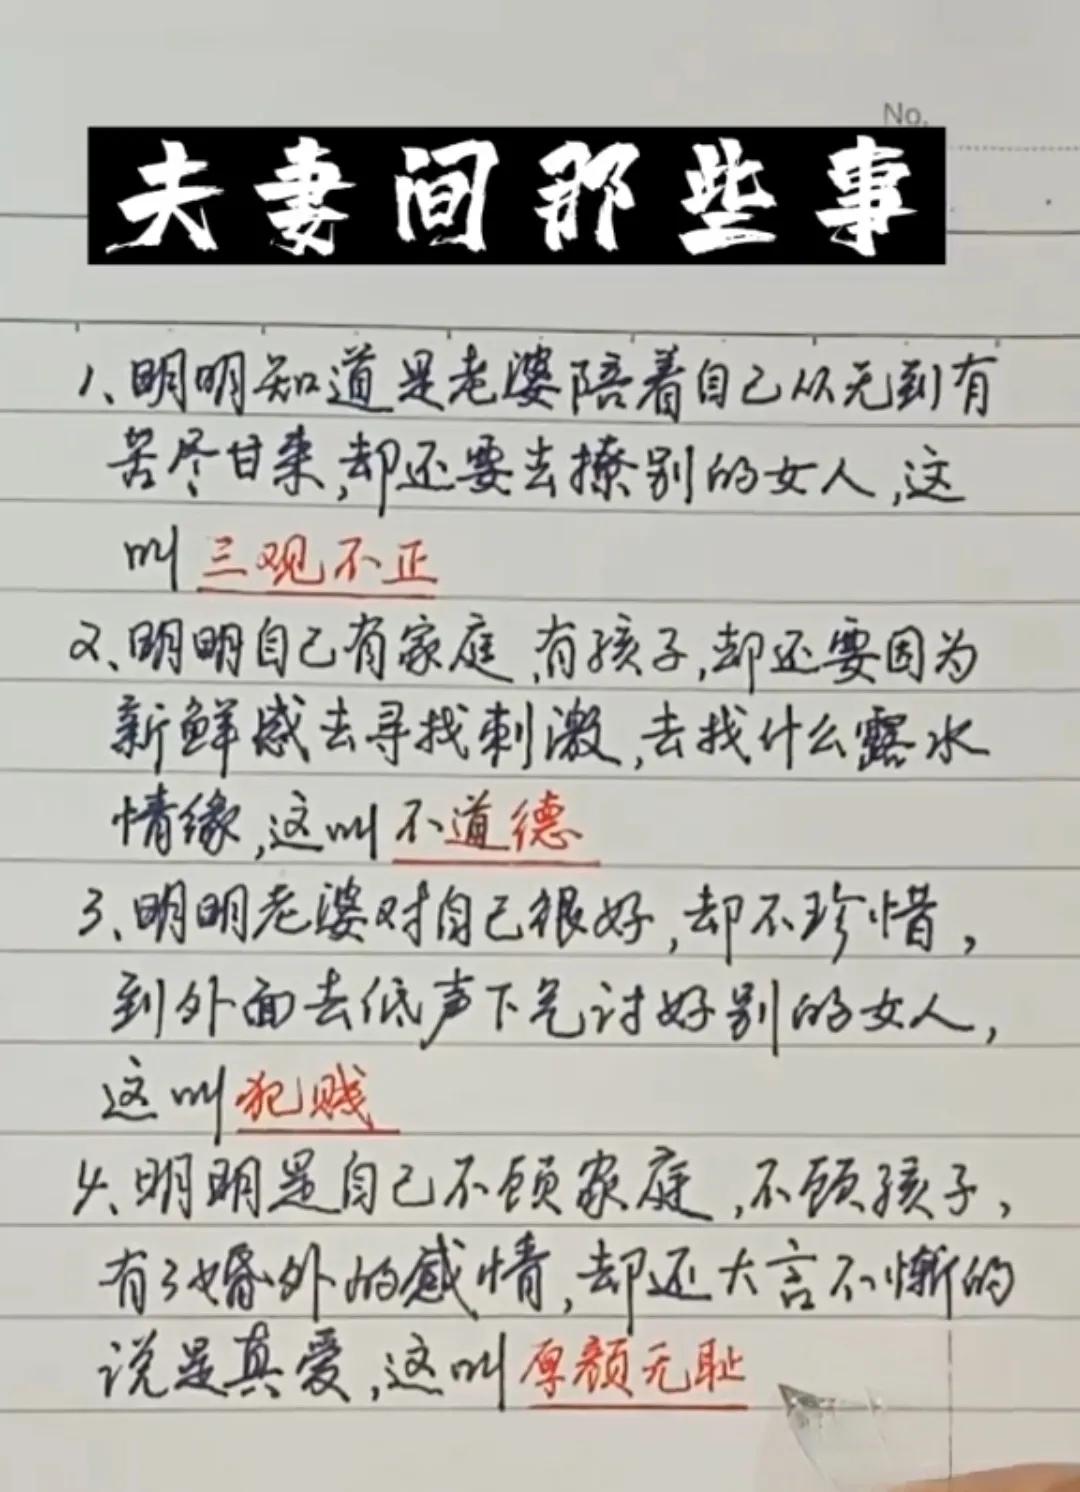 No.
夫妻间那些事
1、明明知道是老婆陪着自己从无到有
苦尽甘来,却还要去撩别的女人,这
叫三观不正
2、明明自己有家庭,有孩子,却还要因为
新鲜感去寻找刺激,去找什么露水
情缘,这叫不道德
3、明明老婆对自己很好,却不珍惜,
到外面去低声下气讨好别的女人,
这叫犯贱
4、明明是自己不顾家庭,不顾孩子,
有了婚外的感情,却还大言不惭的
说是真爱,这叫厚颜无耻